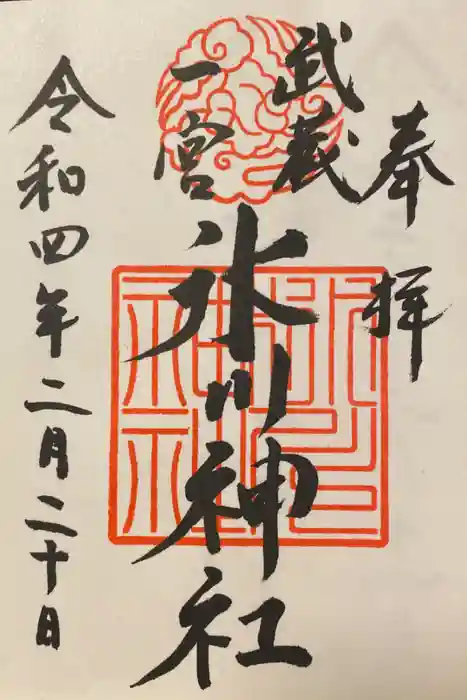 奉拝
武蔵
一宮
氷川神社
令和四年二月二十日
氷川神社